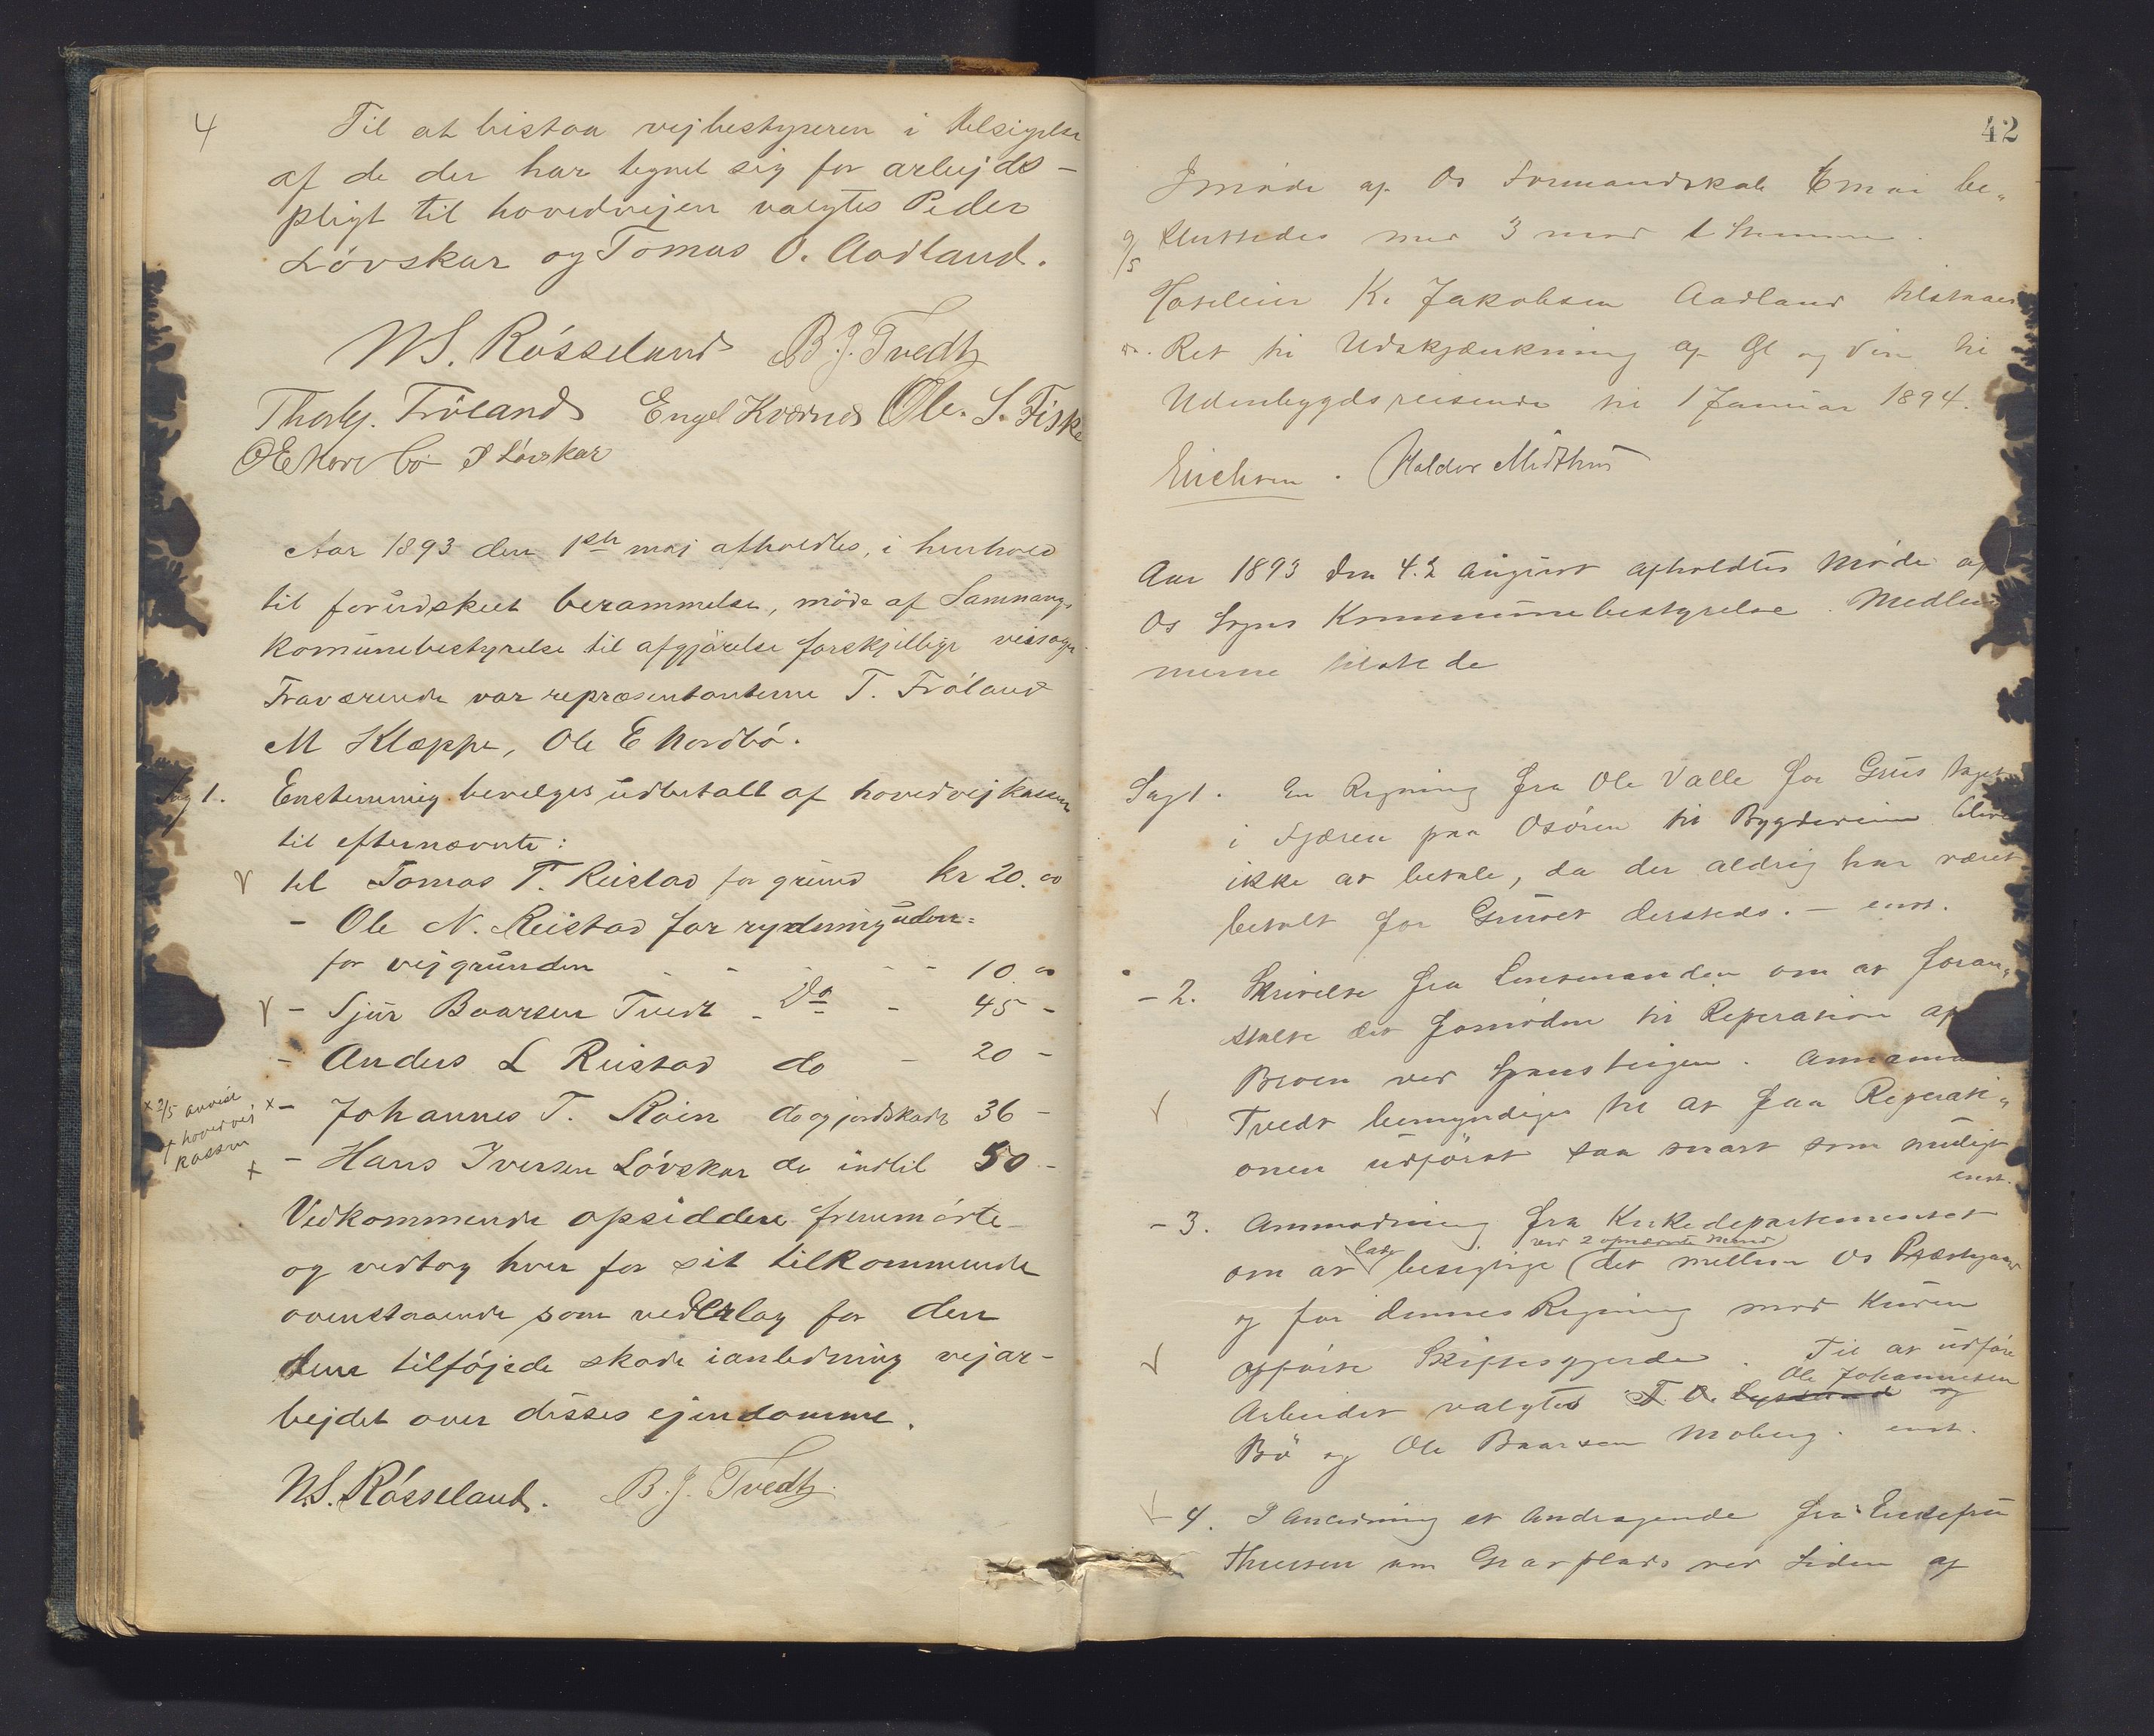 4
Til at bistaa vejbestyreren i tilsigelse
af de der har tegnet sig for arbejds-
pligt til hovedvejen valgtes Peder
Løvskar og Tomas O. Aadland.
N S. Røsseland B. J. Tvedt
Thorbj. Frøland Engel Kværnes Ole. S. Fiske
O E Nordbø P Løvskar
Aar 1893 den 1ste maj afholdtes, i henhold
til forudskeet berammelse, møde af Samnang
komunebestyrelse til afgjørelse forskjellige veisager
Fraværende var repræsentanterne T. Frøland
M Klæppe, Ole E Nordbø.
Sag 1. Enstemmig bevilges udbetalt af hovedvejkassen
til efternævnte:
til Tomas T. Reistad for grund kr 20.00
- Ole N. Reistad for rydning uden=
for vejgrunden - - - - 10.00
- Sjur Baarsen Tvedt - Do - 45 -
- Anders L Reistad do - 20 -
× 2/5 anvist
af hovedvej
kassen
×- Johannes T. Røen do og jordskade 36 -
× - Hans Iversen Løvskar do indtil 50 -
Vedkommende opsiddere fremmødte
og vedtog hver for sit tilkommende
ovenstaaende som vederlag for den
dem tilføjede skade ianledning vejar-
bejdet over disses ejendomme.
N.S. Røsseland. B. J. Tvedt.
42
I møde af Os Formandskab 6 mai be„
9/5 sluttedes med 3 mod 1 Stemme.
Hoteleier K. Jakobsen Aadland tilstaaes
Ret til Udskjænkning af Øl og Vin til
Udenbygdsreisende til 1 Januar 1894.
Erichsen. Haldor Midthus
Aar 1893 den 4. august afholdtes Møde af
Os Sogns Kommunebestyrelse. Medlem
merne tilstede
Sag 1. En Regning fra Ole Valle for Grus taget
i Fjæren paa Osøren til Bygdeveien blive
ikke at betale, da der aldrig har været
betalt for Gruset dersteds. - enst.
- 2. Skrivelse fra Lensmanden om at foran„
stalte det fornødne til Reperation af
Broen ved
Tvedt bemyndiges til at faa Reperati„
onen udført saa snart som muligt
enst.
- 3. Anmodning fra Kirkedepartementet
om at lade besigtige (ved 2 opnævnte Mænd) det mellem Os Præstegaard
og for dennes Regning mod Kuven
opførte Skiftesgjerde. Til at udføre
Arbeidet valgtes Ole Johannesen
Bø og Ole Baarsen Moberg. enst.
- 4. I Anledning et Andragende fra Enkefru
Thuesen om Gravplads ved Siden af